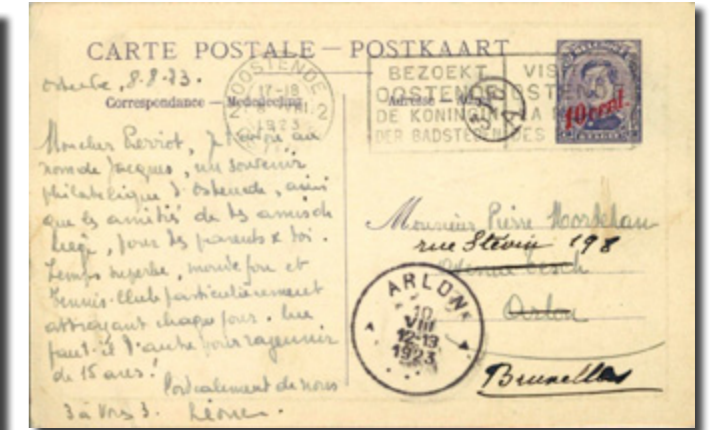 CARTE POSTALE — POSTKAART
8.8.23.
OOSTENDE
17-18
VIII.
1923
2
BEZOEKT
OOSTENDE
DE KONINGIN
DER BADSTEDEN
VIS
OSTEND
LA
DES
10 cent.
Correspondance — Mededeeling
Adresse —
Mon cher Pierrot, je t'envoie au
nom de Jacques, un souvenir
philatélique d'Ostende, ainsi
que les amitiés de tes amis de
Liège, pour tes parents & toi.
Temps superbe, monde fou et
Tennis-Club particulièrement
attrayant chaque jour. Que
faut-il d'autre pour rajeunir
de 15 ans!
Cordialement de nous
3 à vous 3.
Monsieur Pierre
rue Stévin 198
Arlon
Bruxelles
ARLON
10
VIII
12-13
1923